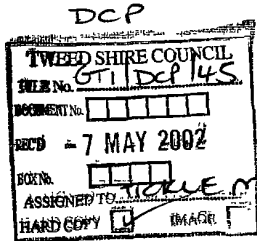 DCP
TWEED SHIRE COUNCIL
FILE No. GT1/DCP/45
DOCUMENT No.
RECD - 7 MAY 2002
BOX No.
ASSIGNED TO TICKLE M
HARD COPY IMAGE